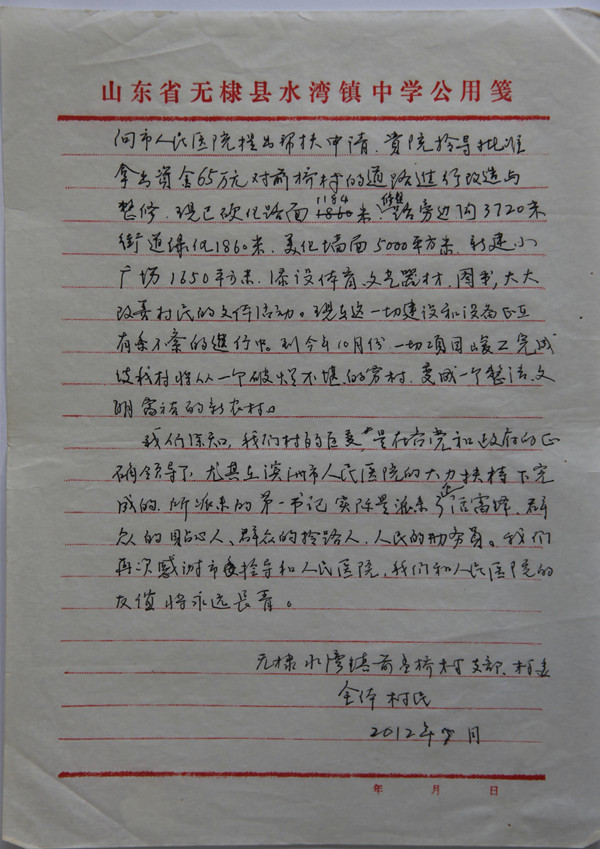 山东省无棣县水湾镇中学公用笺
向市人民医院提出帮扶申请，贵院领导批准
拿出资金65万元对前桥村的道路进行改造与
整修，现已硬化路面1184米，修整路旁边沟3720米
街道绿化1860米，美化墙面5000平方米，新建小
广场1650平方米，添设体育文艺器材，图书，大大
改善村民的文体活动。现在这一切建设和设备正在
有条不紊的进行中。到今年10月份一切项目竣工完成
使我村将从一个破烂不堪的穷村，变成一个整洁文
明富裕的新农村。
我们深知，我们村的巨变，是在党和政府的正
确领导下，尤其在滨州市人民医院的大力扶持下完
成的，所派来的第一书记实际是派来了活雷锋，群
众的贴心人、群众的领路人，人民的勤务员。我们
再次感谢市委领导和人民医院，我们和人民医院的
友谊将永远长青。
无棣水湾镇前 桥村支部、村委
全体村民
2012年 月
年 月 日